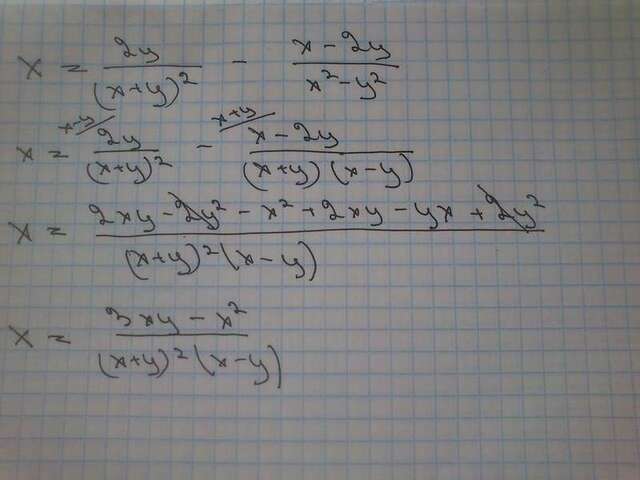 x = 2y/(x+y)² - (x-2y)/(x²-y²)
x = x-y/ 2y/(x+y)² - x+y/ (x-2y)/((x+y)(x-y))
x = (2xy - 2y² - x² + 2xy - yx + 2y²)/((x+y)²(x-y))
x = (3xy - x²)/((x+y)²(x-y))